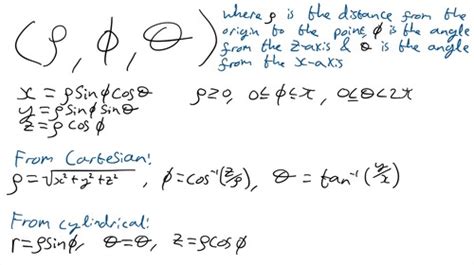 (ρ, ϕ, θ)
where ρ is the distance from the
origin to the point, ϕ is the angle
from the z-axis & θ is the angle
from the x-axis
x = ρ sinϕ cosθ
y = ρ sinϕ sinθ
z = ρ cosϕ
ρ≥0, 0≤ϕ≤π, 0≤θ<2π
From Cartesian!
ρ = √x² + y² + z² , ϕ = cos⁻¹(z/ρ), θ = tan⁻¹(y/x)
From cylindrical!
r = ρ sinϕ, θ = θ, z = ρ cosϕ